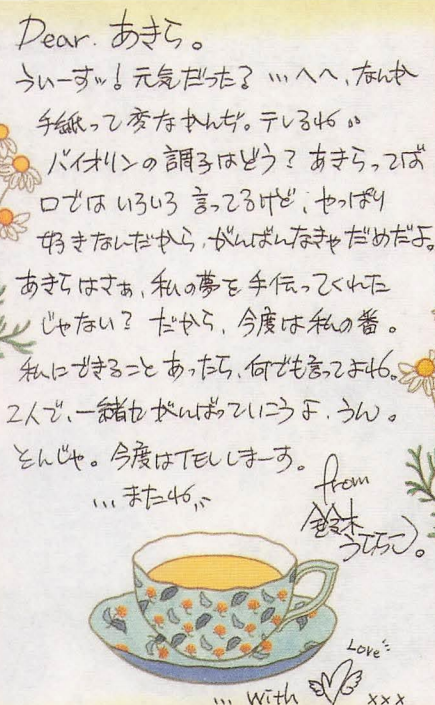 Dear. あきら。
うぃーすッ! 元気だった? …へへ、なんか
手紙って変なかんぢ。テレる46〃
バイオリンの調子はどう? あきらってば
口ではいろいろ言ってるけど、やっぱり
好きなんだから、がんばんなきゃだめだよ。
あきらはさぁ、私の夢を手伝ってくれた
じゃない? だから、今度は私の番。
私にできることあったら、何でも言ってよ46。
2人で、一緒にがんばっていこうよ、うん。
そんじゃ。今度はTELしまーす。
…また46〃
from
鈴木
love
… with xxx